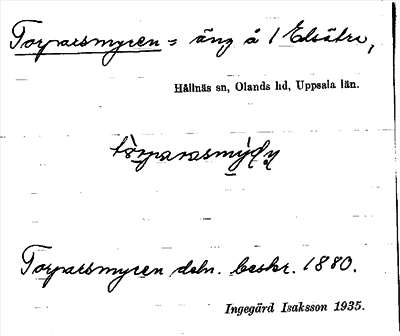 Torparsmyren = äng å 1 Elsätra,
Hållnäs sn, Olands hd, Uppsala län.
Torparsmyren deln. beskr. 1880.
Ingegärd Isaksson 1935.